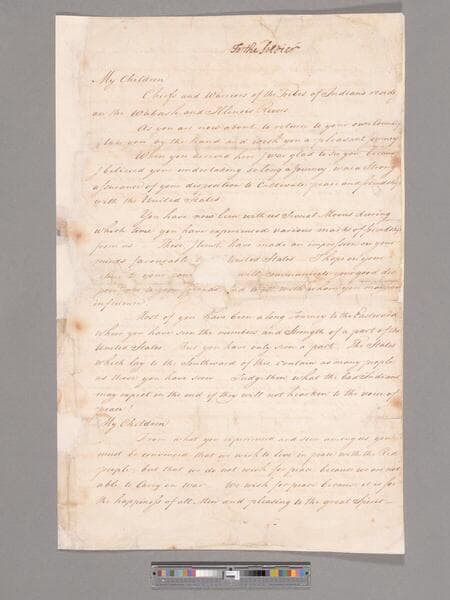 My Children
Chiefs and Warriors of the Tribes of Indians residg
on the Wabash and Illinois Rivers.
As you are now about to return to your own Country
I take you by the hand and wish you a pleasant journey
When you arrived here I was glad to see you because
I believed your undertaking so long a Journey was a Strong
assurance of your disposition to Cultivate peace and friendship
with the United States.
You have now been with us Several Moons during
which time you have experienced various marks of friendship
from us. These I trust have made an impression on your
minds favourable United States I hope on your
to your will communicate your good dis
to your and
influence.
Most of you have been a long Journey to the Eastward
where you have seen the numbers and Strength of a part of the
United States. But you have only seen a part. The States
which lay to the Southward of this contain as many people
as those you have seen. Judge then what the bad Indians
may expect in the end if they will not hearken to the voice of
peace!
My Children
From what you experienced and seen among us you
must be convinced that we wish to live in peace with the Red
people, but that we do not wish for peace because we are not
able to Carry on War. We wish for peace because it is for
the happiness of all Men and pleasing to the great Spirit